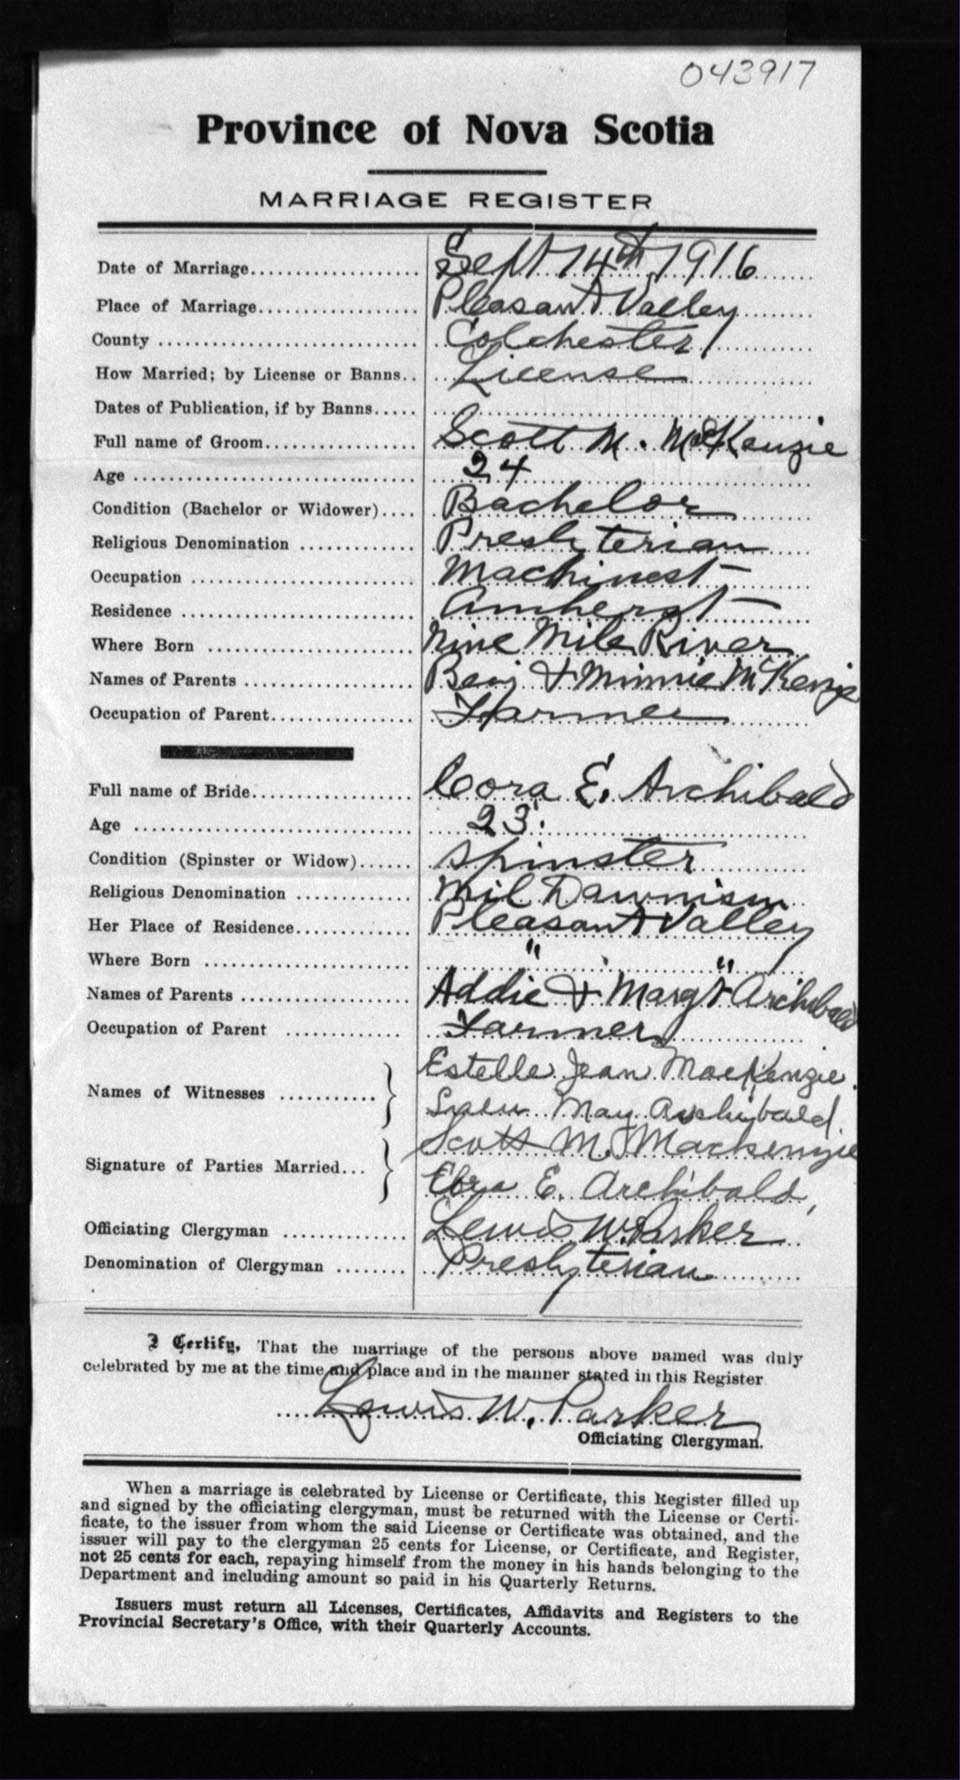 043917
Province of Nova Scotia
MARRIAGE REGISTER
Date of Marriage.................. Sept 14th, 1916
Place of Marriage.................. Pleasant Valley
County .................. Colchester
How Married; by License or Banns.. License
Dates of Publication, if by Banns.....
Full name of Groom.................. Scott M. McKenzie
Age .................. 24
Condition (Bachelor or Widower).... Bachelor
Religious Denomination .................. Presbyterian
Occupation .................. Machinest
Residence .................. Amherst
Where Born .................. Nine Mile River
Names of Parents .................. Benj & Minnie McKenzie
Occupation of Parent.................. Farmer
Full name of Bride.................. Cora E. Archibald
Age .................. 23.
Condition (Spinster or Widow)...... Spinster
Religious Denomination .............. Mil Dawnism
Her Place of Residence.............. Pleasant Valley
Where Born .................. " "
Names of Parents .................. Addie & Margt Archibald
Occupation of Parent .............. Farmer
Names of Witnesses ........... } Estelle Jean MacKenzie.
May Archibald.
Signature of Parties Married... } Scott M. Mackenzie
Cora E. Archibald,
Officiating Clergyman .............. Lewis W. Parker
Denomination of Clergyman ........ Presbyterian
I Certify, That the marriage of the persons above named was duly
celebrated by me at the time and place and in the manner stated in this Register
.... Lewis W. Parker
Officiating Clergyman.
When a marriage is celebrated by License or Certificate, this Register filled up
and signed by the officiating clergyman, must be returned with the License or Certi-
ficate, to the issuer from whom the said License or Certificate was obtained, and the
issuer will pay to the clergyman 25 cents for License, or Certificate, and Register,
not 25 cents for each, repaying himself from the money in his hands belonging to the
Department and including amount so paid in his Quarterly Returns.
Issuers must return all Licenses, Certificates, Affidavits and Registers to the
Provincial Secretary's Office, with their Quarterly Accounts.